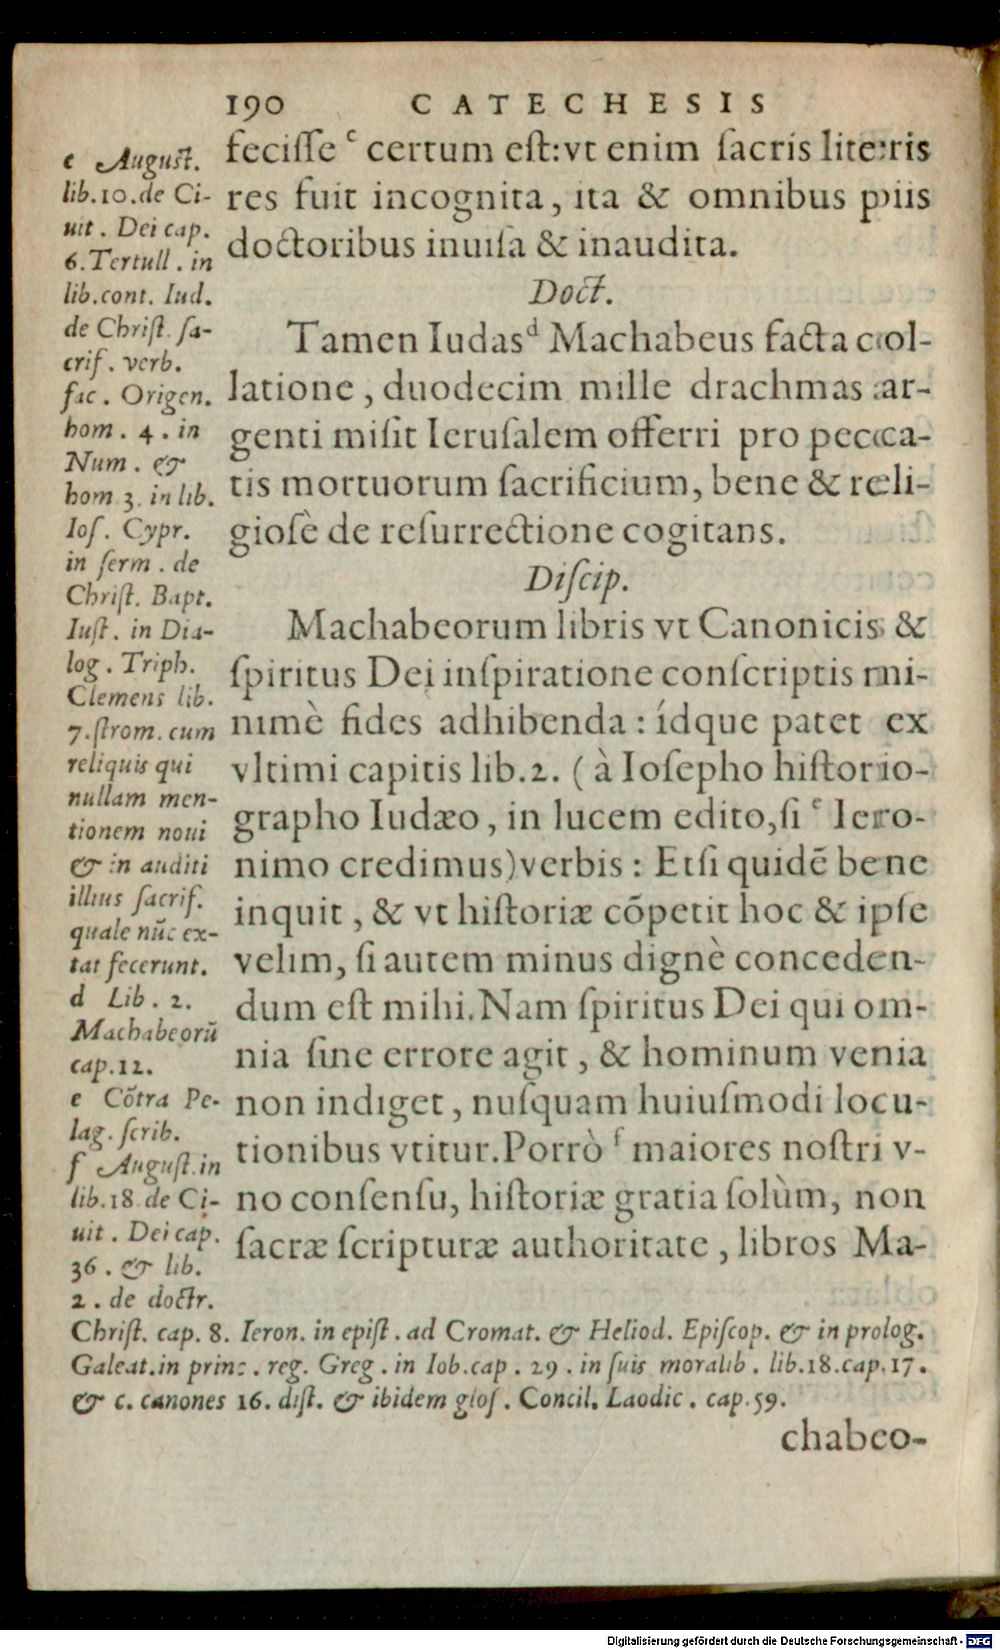 190 CATECHESIS
fecisse ᶜ certum est:vt enim sacris literis
res fuit incognita, ita & omnibus piis
doctoribus inuisa & inaudita.
Doct.
Tamen Iudas ᵈ Machabeus facta col-
latione, duodecim mille drachmas ar-
genti misit Ierusalem offerri pro pecca-
tis mortuorum sacrificium, bene & reli-
giosè de resurrectione cogitans.
Discip.
Machabeorum libris vt Canonicis &
spiritus Dei inspiratione conscriptis mi-
nimè fides adhibenda : ídque patet ex
vltimi capitis lib.2. (à Iosepho historio-
grapho Iudæo, in lucem edito,si ᵉ Iero-
nimo credimus)verbis : Etsi quidē bene
inquit, & vt historiæ cōpetit hoc & ipse
velim, si autem minus dignè conceden-
dum est mihi. Nam spiritus Dei qui om-
nia sine errore agit, & hominum venia
non indiget, nusquam huiusmodi locu-
tionibus vtitur. Porrò ᶠ maiores nostri v-
no consensu, historiæ gratia solùm, non
sacræ scripturæ authoritate, libros Ma-
c August.
lib.10.de Ci-
uit. Dei cap.
6.Tertull. in
lib.cont. Iud.
de Christ. sa-
crif. verb.
fac. Origen.
hom. 4. in
Num. &
hom 3. in lib.
Ios. Cypr.
in serm. de
Christ. Bapt.
Iust. in Dia-
log. Triph.
Clemens lib.
7.strom. cum
reliquis qui
nullam men-
tionem noui
& in auditi
illius sacrif.
quale nūc ex-
tat fecerunt.
d Lib. 2.
Machabeorū
cap.12.
e Cōtra Pe-
lag. scrib.
f August.in
lib.18 de Ci-
uit. Dei cap.
36. & lib.
2. de doctr.
Christ. cap. 8. Ieron. in epist. ad Cromat. & Heliod. Episcop. & in prolog.
Galeat.in princ. reg. Greg. in Iob.cap. 29. in suis moralib. lib.18.cap.17.
& c. canones 16. dist. & ibidem glos. Concil. Laodic. cap.59.
chabeo-
Digitalisierung gefördert durch die Deutsche Forschungsgemeinschaft - DFG